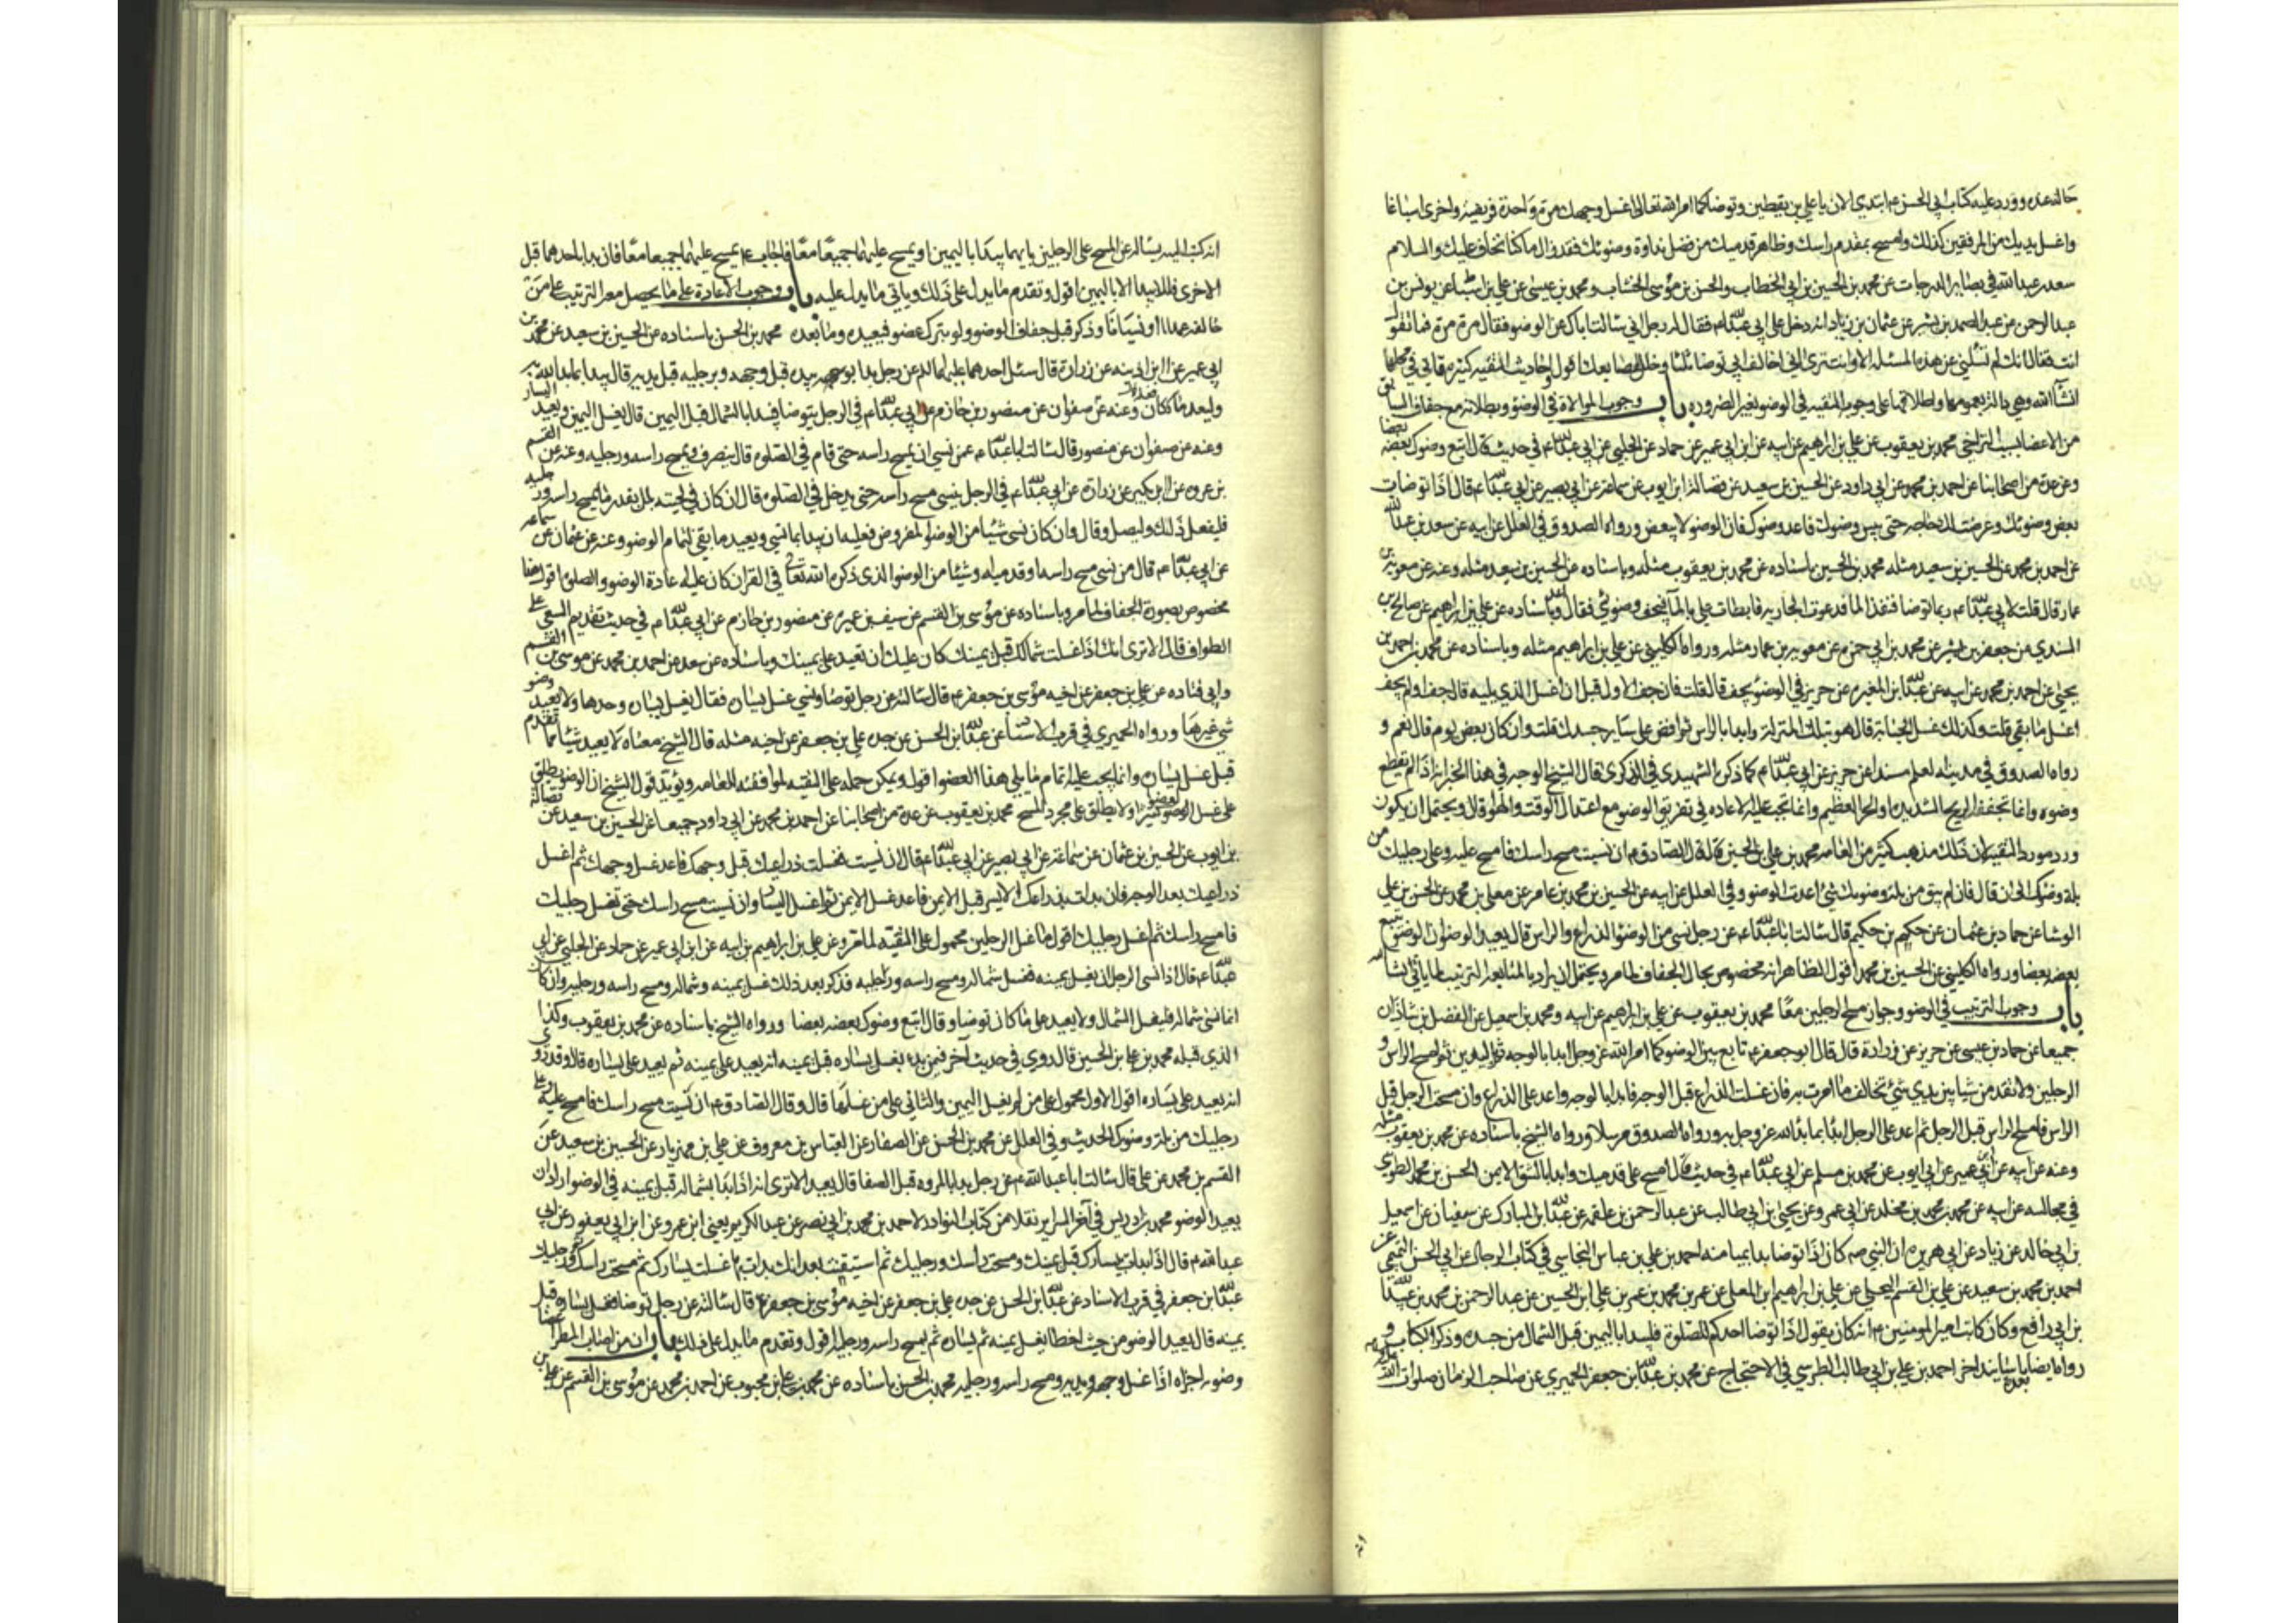 حاله عنده وورد عليه كتاب ابي الحسن ع ابتدئ الان يا علي بن يقطين وتوضا كما امر الله تعالى اغسل وجهك مرة واحدة فريضة واخرى اسباغا
واغسل يديك من المرفقين كذلك وامسح بمقدم راسك وظاهر قدميك من فضل نداوة وضوئك فقد زال ما كنا نخاف عليك والسلام
سعد بن عبد الله في بصاير الدرجات عن محمد بن الحسين بن ابي الخطاب والحسن بن موسى الخشاب ومحمد بن عيسى عن علي بن اسباط عن يونس بن
عبد الرحمن عن عبد الصمد بن بشير عن عثمان بن زياد انه دخل على ابي عبد الله ع فقال له رجل اني سالت اباك عن الوضو فقال مرة مرة فما تقول
انت فقال انك لم تسئلني عن هذه المسئلة الا وانت ترى اني اخالف ابي توضا ثلثا وخلل اصابعك اقول واحاديث التقية كثيرة ياتي في محلها
انشا الله وهي دالة بعمومها واطلاقها على وجوب التقية في الوضو بغير الضرورة باب وجوب الموالاة في الوضو وبطلانه مع جفاف السابق
من الاعضا بسبب التراخي محمد بن يعقوب عن علي بن ابراهيم عن ابيه عن ابن ابي عمير عن حماد عن الحلبي عن ابي عبد الله ع في حديث قال اتبع وضوك بعضه بعضا
وعن عدة من اصحابنا عن احمد بن محمد وعن ابي داود عن الحسين بن سعيد عن فضالة بن ايوب عن سماعة عن ابي بصير عن ابي عبد الله ع قال اذا توضات
بعض وضوئك وعرضت لك حاجة حتى يبس وضوئك فاعد وضوك فان الوضو لا يبعض ورواه الصدوق في العلل عن ابيه عن سعد بن عبد الله
عن احمد بن محمد عن الحسين بن سعيد مثله محمد بن الحسن باسناده عن محمد بن يعقوب مثله وباسناده عن الحسين بن سعيد مثله وعنه عن معوية بن
عمار قال قلت لابي عبد الله ع ربما توضات فنفذ الما فدعوت الجارية فابطات علي بالما فيجف وضوئي فقال اعد وباسناده عن علي بن ابراهيم عن صالح بن
السندي عن جعفر بن بشير عن محمد بن ابي حمزة عن معوية بن عمار مثله ورواه الكليني عن علي بن ابراهيم مثله وباسناده عن محمد بن احمد بن
يحيى عن احمد بن محمد عن ابيه عن عبد الله بن المغيرة عن حريز في الوضو يجف قال قلت فان جف الاول قبل ان اغسل الذي يليه قال جف او لم يجف
اغسل ما بقي قلت وكذلك غسل الجنابة قال هو بتلك المنزلة وابدا بالراس ثم افض على ساير جسدك قلت وان كان بعض يوم قال نعم و
رواه الصدوق في مدينة العلم مسندا عن حريز عن ابي عبد الله ع كما ذكره الشهيد في الذكرى قال الشيخ الوجه في هذا الخبر انه اذا لم يقطع
وضوه وانما تجففه الريح الشديدة او الحر العظيم وانما تجب عليه الاعادة في تفريق الوضو مع اعتدال الوقت والهوا قال ويحتمل ان يكون
ورد مورد التقية لان ذلك مذهب كثير من العامة محمد بن علي بن الحسين قال قال الصادق ع ان نسيت مسح راسك فامسح عليه وعلى رجليك من
بلة وضوئك الى ان قال فان لم يبق من بلة وضوئك شي اعدت الوضو وفي العلل عن ابيه عن الحسين بن محمد بن عامر عن معلى بن محمد عن الحسن بن علي
الوشا عن حماد بن عثمان عن حكيم بن حكيم قال سالت ابا عبد الله ع عن رجل نسي من الوضو الذراع والراس قال يعيد الوضو ان الوضو يتبع
بعضه بعضا ورواه الكليني عن الحسين بن محمد اقول الظاهر انه مخصوص بحال الجفاف لما مر ويحتمل ان يراد بالمتابعة الترتيب لما ياتي انشا الله
باب وجوب الترتيب في الوضو وجواز مسح الرجلين معا محمد بن يعقوب عن علي بن ابراهيم عن ابيه ومحمد بن اسمعيل عن الفضل بن شاذان
جميعا عن حماد بن عيسى عن حريز عن زرارة قال قال ابو جعفر ع تابع بين الوضو كما امر الله عز وجل ابدا بالوجه ثم باليدين ثم امسح الراس و
الرجلين ولا تقدمن شيئا بين يدي شي تخالف ما امرت به فان غسلت الذراع قبل الوجه فابدا بالوجه واعد على الذراع وان مسحت الرجل قبل
الراس فامسح على الراس قبل الرجل ثم اعد على الرجل ابدا بما بدا الله عز وجل به ورواه الصدوق مرسلا ورواه الشيخ باسناده عن محمد بن يعقوب مثله
وعنه عن ابيه عن ابن ابي عمير عن ابي ايوب عن محمد بن مسلم عن ابي عبد الله ع في حديث قال امسح على قدميك وابدا بالشق الايمن الحسن بن محمد الطوسي
في مجالسه عن ابيه عن محمد بن محمد بن مخلد عن ابي عمر وعن يحيى بن ابي طالب عن عبد الرحمن بن علقمة عن عبد الله بن المبارك عن سفيان عن اسمعيل
بن ابي خالد عن زياد عن ابي هريرة ان النبي ص كان اذا توضا بدا بميامنه احمد بن علي بن عباس النجاشي في كتاب الرجال عن ابي الحسن التميمي عن
احمد بن محمد بن سعيد عن علي بن القسم البجلي عن علي بن ابراهيم بن المعلى عن عمر بن محمد بن عمر بن علي بن الحسين عن عبد الرحمن بن محمد بن عبيد الله
بن ابي رافع وكان كاتب امير المومنين ع انه كان يقول اذا توضا احدكم للصلوة فليبدا باليمين قبل الشمال من جسده وذكر الكتاب و
رواه ايضا باسانيد اخر احمد بن علي بن ابي طالب الطبرسي في الاحتجاج عن محمد بن عبد الله بن جعفر الحميري عن صاحب الزمان صلوات الله
انه كتب اليه يساله عن المسح على الرجلين بايهما يبدا باليمين او يمسح عليهما جميعا معا فاجاب ع يمسح عليهما جميعا معا فان بدا باحدهما قبل
الاخرى فلا يبدا الا باليمين اقول وتقدم ما يدل على ذلك وياتي ما يدل عليه باب وجوب الاعادة على ما يحصل معه الترتيب على من
خالفه عمدا او نسيانا وذكر قبل جفاف الوضو ولو بترك عضو فيعيده وما بعده محمد بن الحسن باسناده عن الحسين بن سعيد عن محمد بن
ابي عمير عن ابن اذينة عن زرارة قال سئل احدهما عليهما السلام عن رجل بدا بيده قبل وجهه وبرجليه قبل يديه قال يبدا بما بدا الله به
وليعد ما كان وعنه عن صفوان عن منصور بن حازم عن ابي عبد الله ع في الرجل يتوضا فيبدا بالشمال قبل اليمين قال يغسل اليمين ويعيد اليسار
وعنه عن صفوان عن منصور قال سالت ابا عبد الله ع عمن نسي ان يمسح راسه حتى قام في الصلوة قال ينصرف ويمسح راسه ورجليه وعنه عن القسم
بن عروة عن ابن بكير عن زرارة عن ابي عبد الله ع في الرجل ينسى مسح راسه حتى يدخل في الصلوة قال ان كان في لحيته بلل بقدر ما يمسح راسه ورجليه
فليفعل ذلك وليصل وقال وان كان نسي شيئا من الوضو المفروض فعليه ان يبدا بما نسي ويعيد ما بقي لتمام الوضو وعنه عن عثمان عن سماعة
عن ابي عبد الله ع قال من نسي مسح راسه او قدميه او شيئا من الوضو الذي ذكره الله تعالى في القران كان عليه اعادة الوضو والصلوة اقول هذا
مخصوص بصورة الجفاف لما مر وباسناده عن موسى بن القسم عن سيف بن عميرة عن منصور بن حازم عن ابي عبد الله ع في حديث تقديم السعي على
الطواف قال الا ترى انك اذا غسلت شمالك قبل يمينك كان عليك ان تعيد على يمينك وباسناده عن سعد عن احمد بن محمد عن موسى بن القسم
وابي قتادة عن علي بن جعفر عن اخيه موسى بن جعفر ع قال سالته عن رجل توضا ونسي غسل يساره فقال يغسل يساره وحدها ولا يعيد وضو
شي غيرها ورواه الحميري في قرب الاسناد عن عبد الله بن الحسن عن جده علي بن جعفر عن اخيه مثله قال الشيخ معناه لا يعيد شيئا مما تقدم
قبل غسل يساره وانما يجب عليه اتمام ما يلي هذا العضو اقول ويمكن حمله على التقية لموافقته للعامة ويؤيد قول الشيخ ان الوضو يطلق
على غسل العضو كثيرا ولا يطلق على مجرد المسح محمد بن يعقوب عن عدة من اصحابنا عن احمد بن محمد عن ابي داود جميعا عن الحسين بن سعيد عن فضالة
بن ايوب عن الحسين بن عثمان عن سماعة عن ابي بصير عن ابي عبد الله ع قال ان نسيت فغسلت ذراعيك قبل وجهك فاعد غسل وجهك ثم اغسل
ذراعيك بعد الوجه فان بدات بذراعك الايسر قبل الايمن فاعد غسل الايمن ثم اغسل اليسار وان نسيت مسح راسك حتى تغسل رجليك
فامسح راسك ثم اغسل رجليك اقول ما غسل الرجلين محمول على التقية لما مر وعن علي بن ابراهيم عن ابيه عن ابن ابي عمير عن حماد عن الحلبي عن ابي
عبد الله ع قال اذا نسي الرجل ان يغسل يمينه فغسل شماله ومسح راسه ورجليه فذكر بعد ذلك غسل يمينه وشماله ومسح راسه ورجليه وان كان
انما نسي شماله فليغسل الشمال ولا يعيد على ما كان توضا وقال اتبع وضوك بعضه بعضا ورواه الشيخ باسناده عن محمد بن يعقوب وكذا
الذي قبله محمد بن علي بن الحسين قال روي في حديث آخر فيمن بدا بغسل يساره قبل يمينه انه يعيد على يمينه ثم يعيد على يساره قال وقد روي
انه يعيد على يساره اقول الاول محمول على من لم يغسل اليمين والثاني على من غسلها قال وقال الصادق ع ان نسيت مسح راسك فامسح عليه وعلى
رجليك من بلة وضوك الحديث وفي العلل عن محمد بن الحسن عن الصفار عن العباس بن معروف عن علي بن مهزيار عن الحسين بن سعيد عن
القسم بن محمد عن علي قال سالت ابا عبد الله ع عن رجل بدا بالمروة قبل الصفا قال يعيد الا ترى انه اذا بدا بشماله قبل يمينه في الوضو اراد ان
يعيد الوضو محمد بن ادريس في آخر السراير نقلا من كتاب النوادر لاحمد بن محمد بن ابي نصر عن عبد الكريم يعني ابن عمرو عن ابن ابي يعفور عن ابي
عبد الله ع قال اذا بدات بيسارك قبل يمينك ومسحت راسك ورجليك ثم استيقنت بعد انك بدات بها غسلت يسارك ثم مسحت راسك ورجليك
عبد الله بن جعفر في قرب الاسناد عن عبد الله بن الحسن عن جده علي بن جعفر عن اخيه موسى بن جعفر ع قال سالته عن رجل توضا فغسل يساره قبل
يمينه قال يعيد الوضو من حيث اخطا يغسل يمينه ثم يساره ثم يمسح راسه ورجليه اقول وتقدم ما يدل على ذلك باب ان من اصاب المطر اعضا
وضوه اجزاه اذا غسل وجهه ويديه ومسح راسه ورجليه محمد بن الحسن باسناده عن محمد بن علي بن محبوب عن احمد بن محمد عن موسى بن القسم عن علي بن